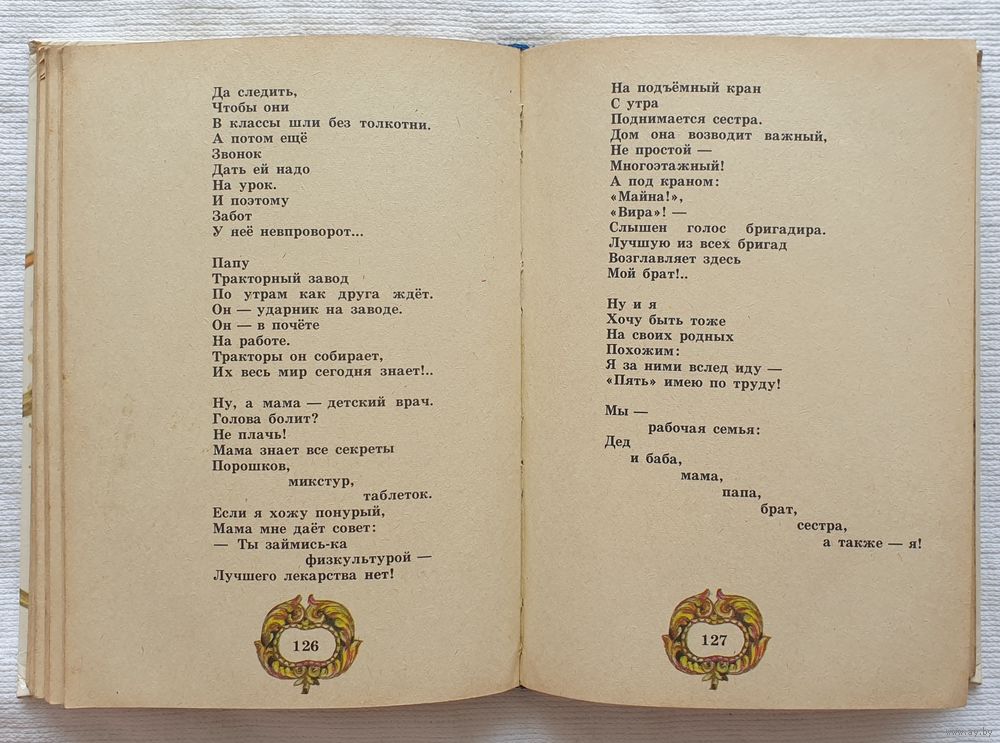 Да следить,
Чтобы они
В классы шли без толкотни.
А потом ещё
Звонок
Дать ей надо
На урок.
И поэтому
Забот
У неё невпроворот...
Папу
Тракторный завод
По утрам как друга ждёт.
Он — ударник на заводе.
Он — в почёте
На работе.
Тракторы он собирает,
Их весь мир сегодня знает!..
Ну, а мама — детский врач.
Голова болит?
Не плачь!
Мама знает все секреты
Порошков,
микстур,
таблеток.
Если я хожу понурый,
Мама мне даёт совет:
— Ты займись-ка
физкультурой —
Лучшего лекарства нет!
126
На подъёмный кран
С утра
Поднимается сестра.
Дом она возводит важный,
Не простой —
Многоэтажный!
А под краном:
«Майна!»,
«Вира»! —
Слышен голос бригадира.
Лучшую из всех бригад
Возглавляет здесь
Мой брат!..
Ну и я
Хочу быть тоже
На своих родных
Похожим:
Я за ними вслед иду —
«Пять» имею по труду!
Мы —
рабочая семья:
Дед
и баба,
мама,
папа,
брат,
сестра,
а также — я!
127
www.ay.by